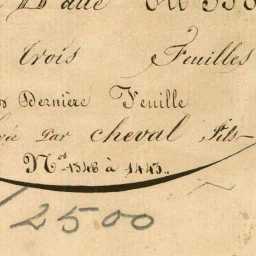 trois Feuilles
Dernière Feuille
par cheval fils
Nos 1348 à 1445.
2500